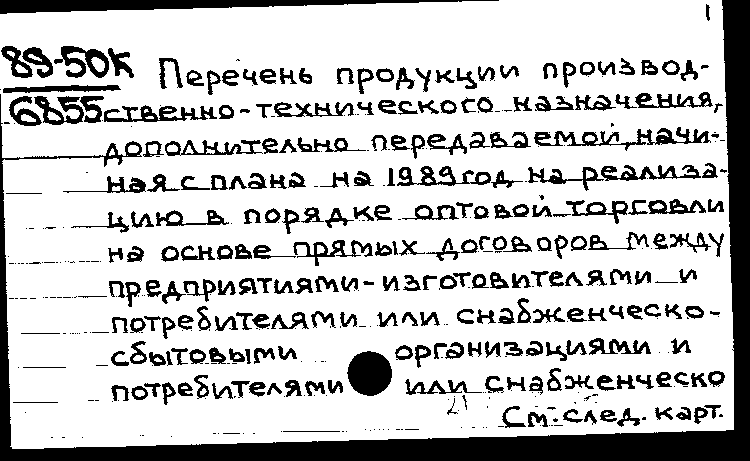 1
89-50К Перечень продукции производ-
6855 ственно-технического назначения,
дополнительно передаваемой, начи-
ная с плана на 1989 год, на реализа-
цию в порядке оптовой торговли
на основе прямых договоров между
предприятиями-изготовителями и
потребителями или снабженческо-
сбытовыми организациями и
потребителями или снабженческо
21
См. след. карт.